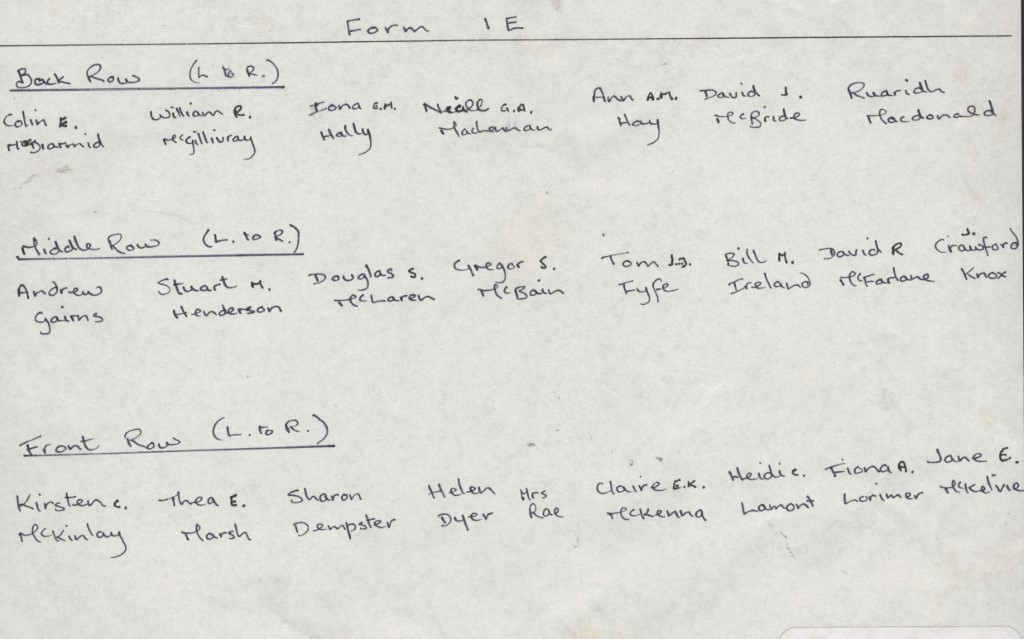 Form 1E
Back Row (L to R.)
Colin E. William R. Iona G.M. Neall G.A. Ann A.M. David J. Ruaridh
McDiarmid McGillivray Hally Hay McBride Macdonald
Middle Row (L. to R.)
Andrew Stuart M. Douglas S. Gregor S. Tom J.J. Bill M. David R J. Crawford
Gairns Henderson McLaren McBain Fyfe Ireland McFarlane Knox
Front Row (L. to R.)
Kirsten C. Thea E. Sharon Helen Mrs Claire E.K. Heidi C. Fiona A. Jane E.
McKinlay Marsh Dempster Dyer Rae McKenna Lamont Lorimer McKelvie